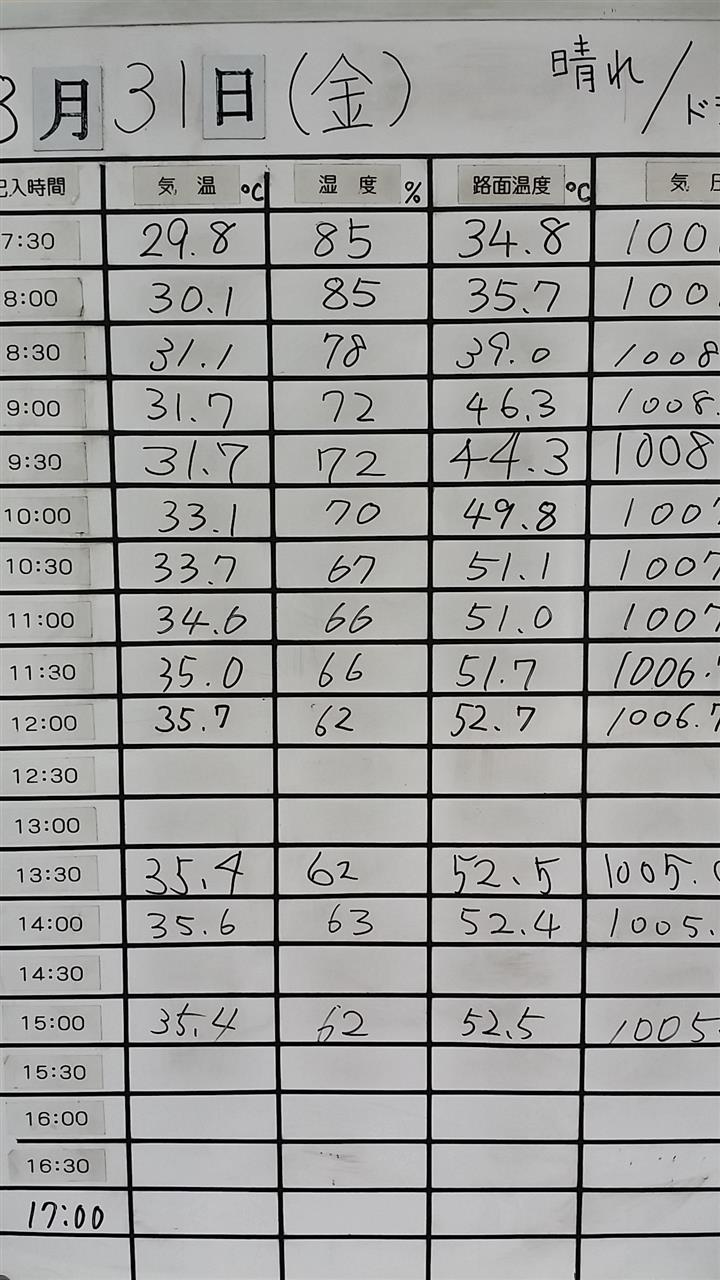 8月31日(金) 晴れ/ド
記入時間 気温 ℃ 湿度 % 路面温度 ℃ 気圧
7:30 29.8 85 34.8 100
8:00 30.1 85 35.7 100
8:30 31.1 78 39.0 1008
9:00 31.7 72 46.3 1008.
9:30 31.7 72 44.3 1008
10:00 33.1 70 49.8 1007
10:30 33.7 67 51.1 1007
11:00 34.6 66 51.0 1007
11:30 35.0 66 51.7 1006.
12:00 35.7 62 52.7 1006.7
12:30
13:00
13:30 35.4 62 52.5 1005.
14:00 35.6 63 52.4 1005.
14:30
15:00 35.4 62 52.5 1005
15:30
16:00
16:30
17:00